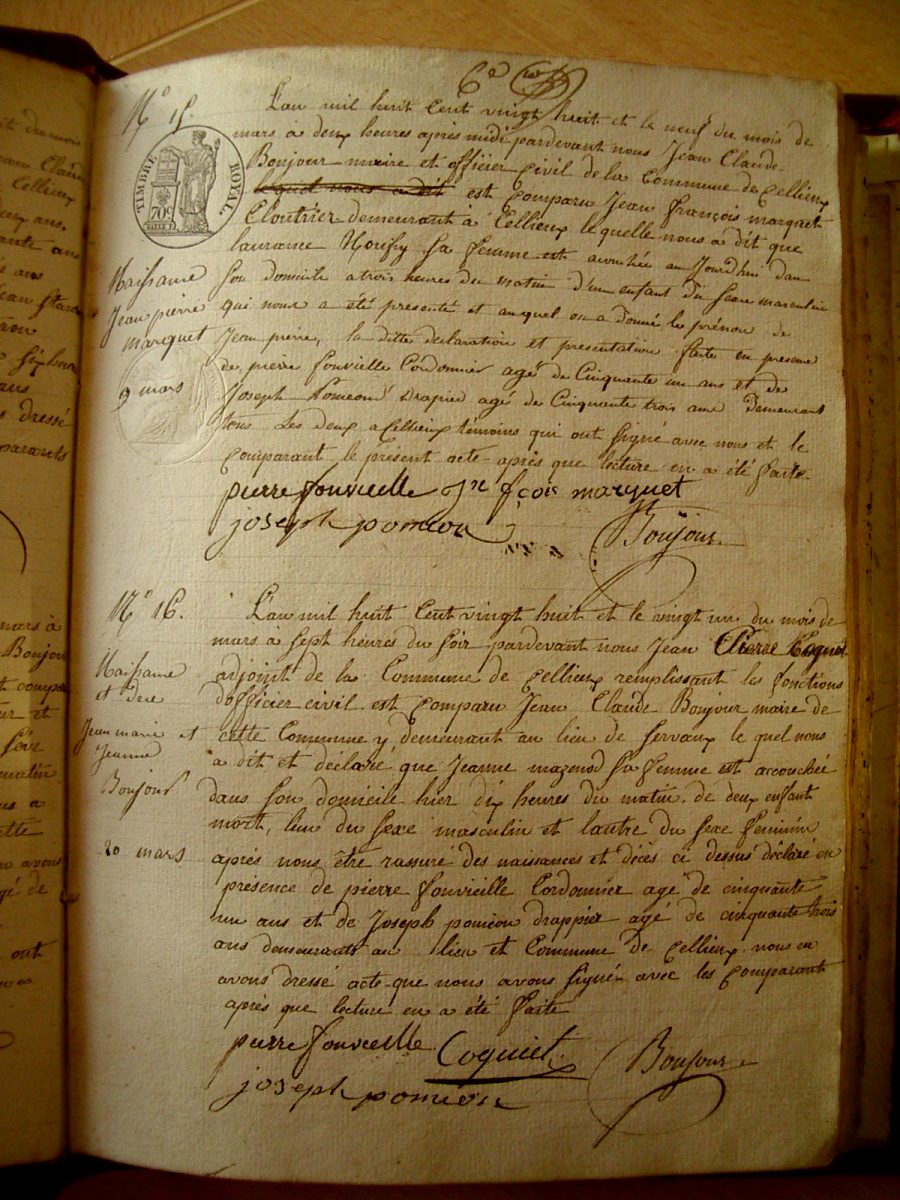 6e
No 15.
L'an mil huit Cent vingt huit et le neuf du mois de
mars à deux heures après midi pardevant nous Jean Claude
Bonjour maire et officier Civil de la Commune de Cellieux
lequel nous a dit est Comparu Jean François marquet
Cloutrier demeurant à Cellieux lequelle nous a dit que
laurance sa femme est acouchée aujourdhui dan
Son domicile a trois heures du matin d'un enfant du Sexe masculin
qui nous a été présenté et auquel on a donné le prénom de
Jean pierre, la ditte déclaration et presentation faite en presence
de pierre fonvieille Cordonnier agé de Cinquante un ans et de
Joseph Poméon drapier agé de Cinquante trois ans Demeurant
tous Les deux a Cellieux témoins qui ont Signé avec nous et le
Comparant le présent acte après que lecture en a été faite
TIMBRE ROYAL
70c
Naissance
Jean pierre
marquet
9 mars
pierre fonvieille jn fçois marquet
joseph pomeon
Bonjour
No 16.
L'an mil huit Cent vingt huit et le vingt un du mois de
mars a Sept heures du Soir pardevant nous Jean Pierre Coquet
adjoint de la Commune de Cellieux remplissant les fonctions
dofficier civil est Comparu Jean Claude Bonjour maire de
cette Commune y demeurant au lieu de Servaux le quel nous
à dit et declaré que Jeanne mazenod Sa femme est accouchée
dans Son domicile hier dix heures du matin de deux enfant
mort, lun du Sexe masculin et lautre du Sexe feminin
aprés nous être rassuré des naissances et décès ci dessus déclaré en
présence de pierre fonvieille Cordonnier agé de cinquante
un ans et de Joseph poméon drappier agé de cinquante trois
ans demeurants au lieu et Commune de Cellieux nous en
avons dressé acte que nous avons Signé avec les Comparant
après que lecture en a été faite
Naissance
et dece
Jean marie et
Jeanne
Bonjour
20 mars
pierre fonvieille Coquet Bonjour
joseph pomeon